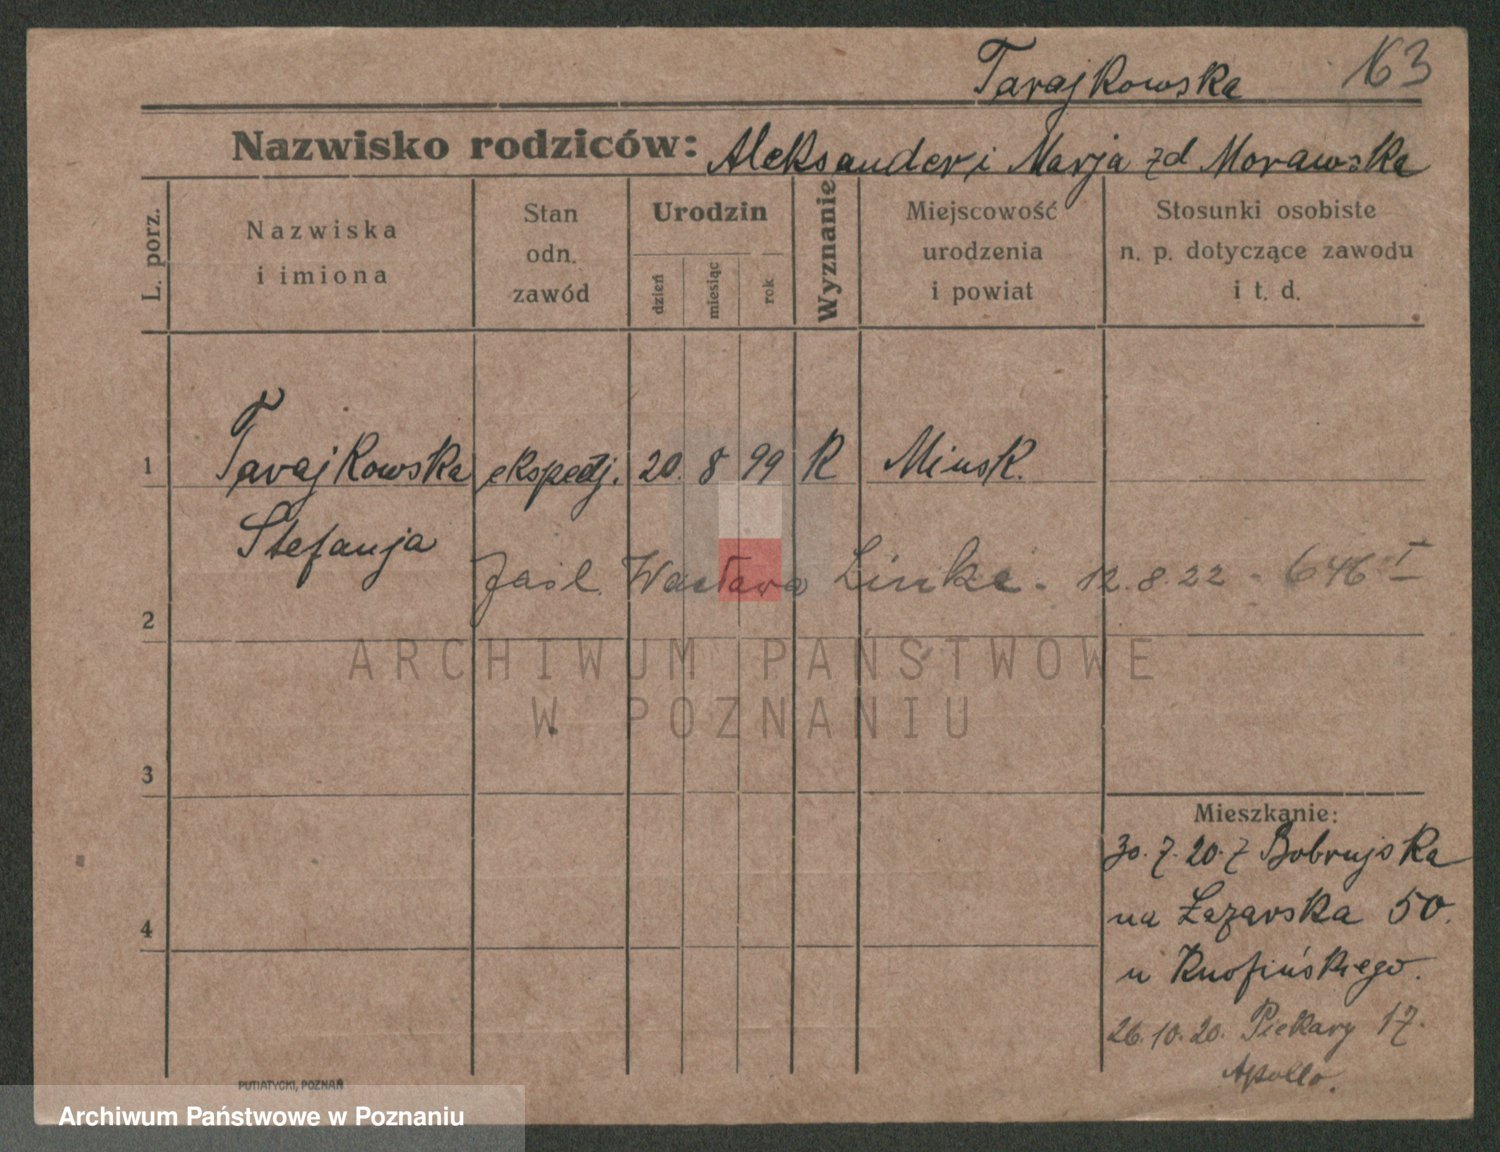 Tarajkowska 163
Nazwisko rodziców: Aleksander i Marja zd Morawska
L. porz.
Nazwiska
i imiona
Stan
odn.
zawód
Urodzin
dzień
miesiąc
rok
Wyznanie
Miejscowość
urodzenia
i powiat
Stosunki osobiste
n. p. dotyczące zawodu
i t. d.
1 Tarajkowska ekspedj. 20. 8 99 R Minsk.
Stefanja
zaśl. Wacława Linke - 12.8.22 - 646 I
2
ARCHIWUM PAŃSTWOWE
W POZNANIU
3
Mieszkanie:
30.7.20. z Bobrujska
na Łazarska 50.
4
u Knofińskiego.
26.10.20. Piekary 17.
Apollo.
PUTIATYCKI, POZNAŃ
Archiwum Państwowe w Poznaniu